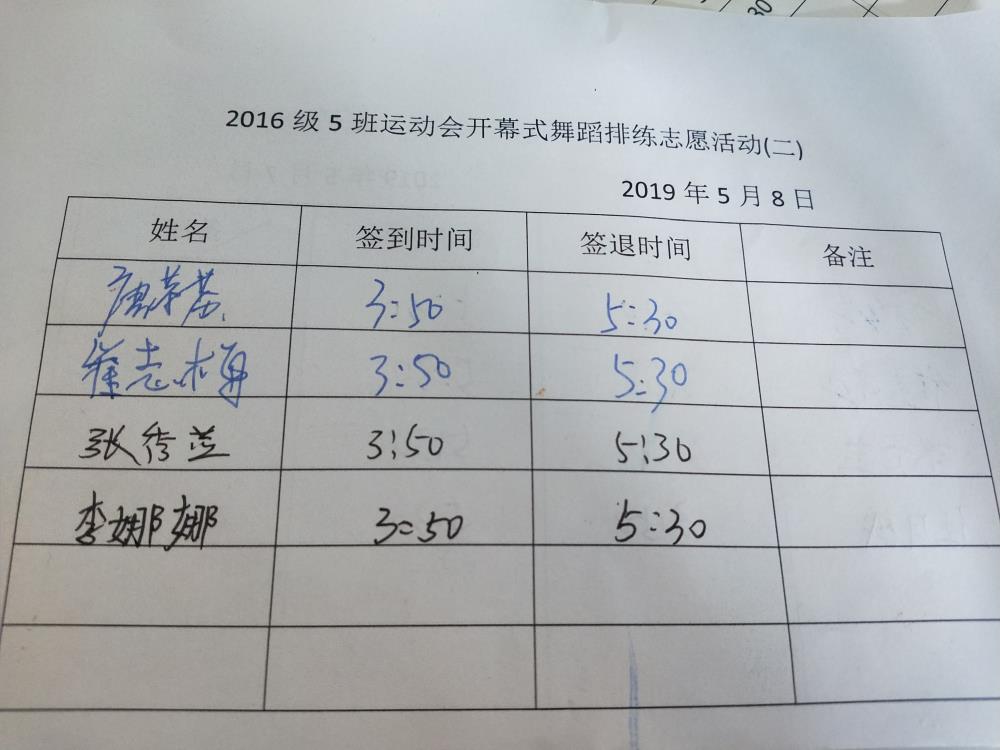 30
2016 级 5 班运动会开幕式舞蹈排练志愿活动(二)
2019 年 5 月 8 日
姓名 签到时间 签退时间 备注
3:50 5:30
崔志梅 3:50 5:30
张秀兰 3:50 5:30
李娜娜 3:50 5:30